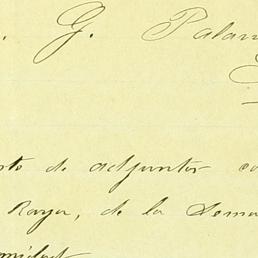 . G. Palan
sto de adjuntar co
Raya, de la Sema